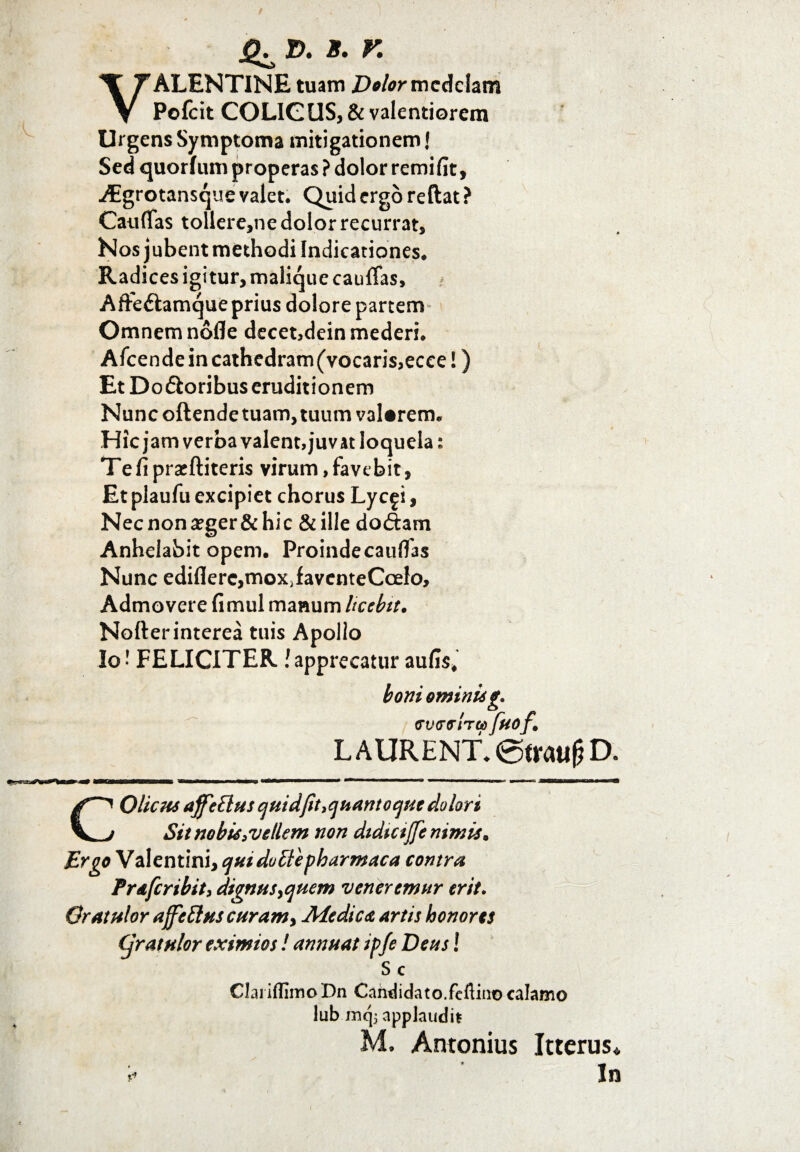 Q. D. B. V.
VALENTINE tuam Dolor medelam
Poſcit COLICUS, & valentiorem
Urgens Symptoma mitigationem!
Sed quorſum properas? dolor remiſit,
Ægrotansque valet. Quid ergò reſtat?
Cauſſas tollere, ne dolor recurrat,
Nos jubent methodi Indicationes.
Radices igitur, malique cauſſas,
Affectamque prius dolore partem
Omnem nôſſe decet, dein mederi.
Aſcende in cathedram (vocaris, ecce!)
Et Doctoribus eruditionem
Nunc oſtende tuam, tuum valorem.
Hîc jam verba valent, juvat loquela:
Te ſi præſtiteris virum, favebit,
Et plauſu excipiet chorus Lycęi,
Nec non æger & hic & ille doctam
Anhelabit opem. Proinde cauſſas
Nunc ediſſere, mox, favente Cœlo,
Admovere ſimul manum licebit.
Noſter intereà tuis Apollo
Io! FELICITER! apprecatur auſis,
boni ominis g.
συσσίτῳ ſuo ſ.
LAURENT. Strauß D.
COlicus affectus quid ſit, quantoque dolori
Sit nobis, vellem non didiciſſe nimis.
Ergo Valentini, qui doctè pharmaca contra
Præſcribit, dignus, quem veneremur erit.
Gratulor affectus curam, Medicæ artis honores
Gratulor eximios! annuat ipſe Deus!
S c
Clariſſimo Dn Candidato. feſtino calamo
lub mq; applaudit
M. Antonius Itterus.
In